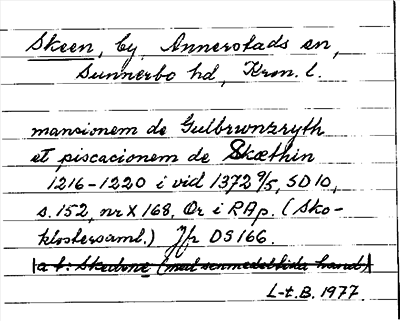 Skeen, by, Annerstads sn,
Sunnerbo hd, Kron. l.
mansionem de Gulbrwnzryth
et piscacionem de Skæthin
1216-1220 i vid 1372 9/5, SD 10,
s. 152, nr X 168, Or i RAp. (Sko-
klostersaml.) Jfr DS 166.
a t: Skedene (med senmedeltida hand)
L-t. B. 1977.